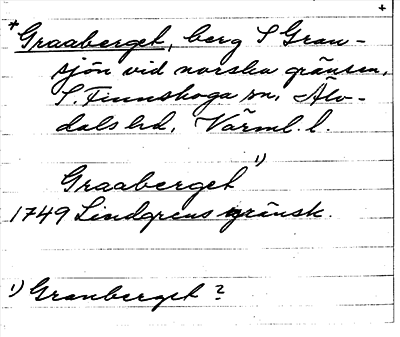 +
*Graaberget, berg S Gran-
sjön vid norska gränsen,
S. Finnskoga sn, Älv-
dals hd, Värml. l.
Graaberget 1)
1749 Lindgrens gränsk.
1) Granberget?